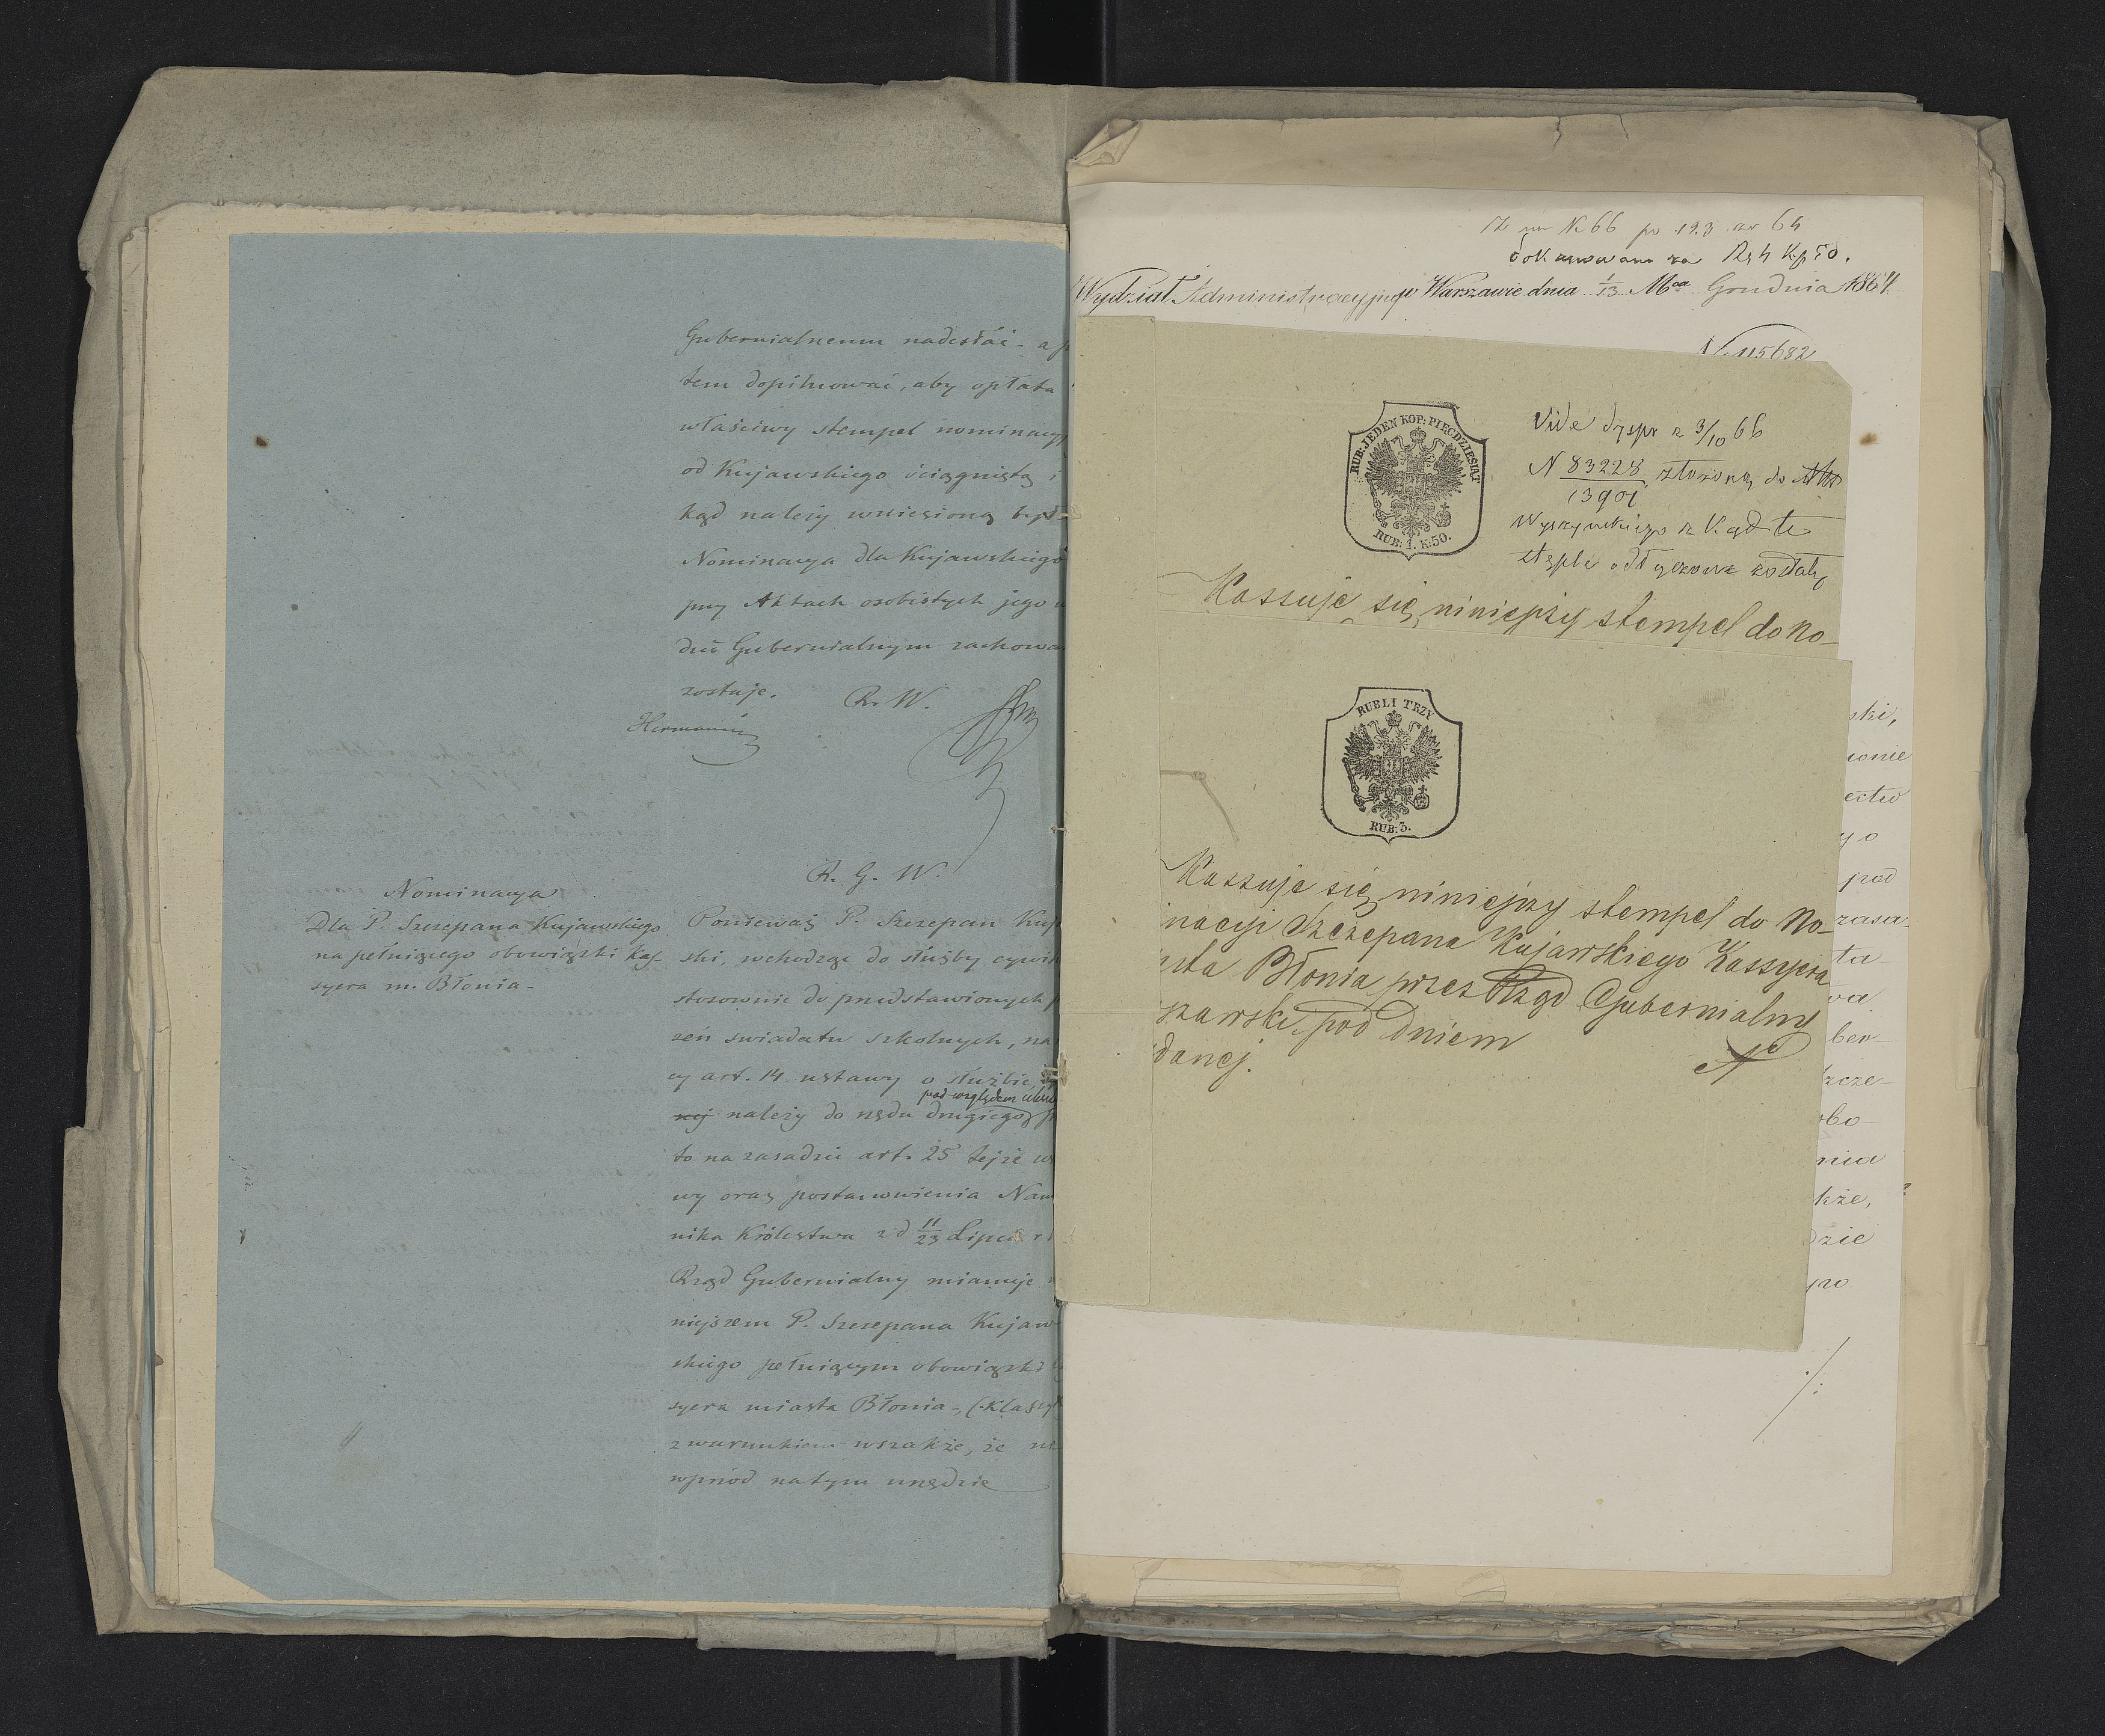 Gubernialnemu nadesłać – a
tem dopilnować, aby opłata
właściwy stempel nominacyj
od Kujawskiego ściągniętą i
kąd należy wniesioną być
Nominacya dla Kujawskiego
przy Aktach osobistych jego
dzie Gubernialnym zachowa
zostaje.
R. W.
Hermanni
R. G. W.
Nominacya
Dla P. Szczepana Kujawskiego
na pełniącego obowiązki Kas-
syera m. Błonia –
Ponieważ P. Szczepan Kuj
ski, wchodząc do służby cywil
stosownie do przedstawionych
zeń swiadectw szkolnych, na
cy art. 14 ustawy o służbie
pod względem
należy do rzędu drugiego
to na zasadzie art. 25 tejże us
wy oraz postanowienia Nam
nika Królestwa z d 11/23 Lipca r
Rząd Gubernialny mianuje
niejszem P. Szczepana Kujaw
skiego pełniącym obowiązki
syera miasta Błonia –, (Klassy
z warunkiem wszakże, że
wprzód na tym urzędzie
N 66
64
Rs 4 Kp 50.
Wydział Administracyjny w Warszawie dnia 1/13 Mca Grudnia 1864
№ 115682
RUB: JEDEN KOP: PIĘĆDZIESIĄT
RUB: 1. K: 50.
Vide dyspr z 3/10 66
N 83228/13901 złożoną do Akt
Wyszyńskiego z kąd te
stęple odłączone zostały
Kassuje się niniejszy stempel do No-
RUBLI TRZY
RUB: 3.
Kassuje się niniejszy stempel do No-
inacyi Szczepana Kujawskiego Kassyera
asta Błonia przez Rząd Gubernialny
szawski, pod dniem №
danej.
ski,
ionie
ectw
go
pod
zasa-
ta
wa
ber-
zcze-
obo-
nia
kże,
dzie
./.